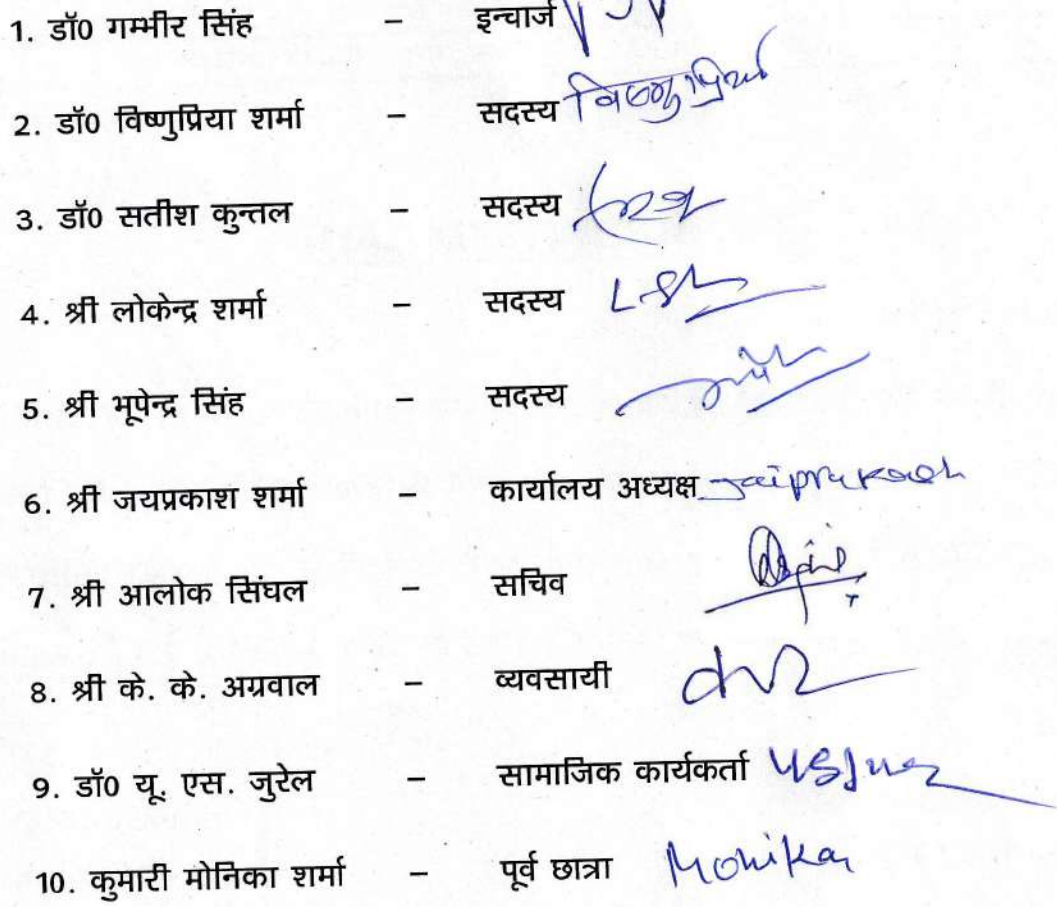 1. डॉ0 गम्भीर सिंह – इन्चार्ज
2. डॉ0 विष्णुप्रिया शर्मा – सदस्य विष्णुप्रिया
3. डॉ0 सतीश कुन्तल – सदस्य
4. श्री लोकेन्द्र शर्मा – सदस्य
5. श्री भूपेन्द्र सिंह – सदस्य
6. श्री जयप्रकाश शर्मा – कार्यालय अध्यक्ष Jaiprakash
7. श्री आलोक सिंघल – सचिव
8. श्री के. के. अग्रवाल – व्यवसायी
9. डॉ0 यू. एस. जुरेल – सामाजिक कार्यकर्ता
10. कुमारी मोनिका शर्मा – पूर्व छात्रा Monika